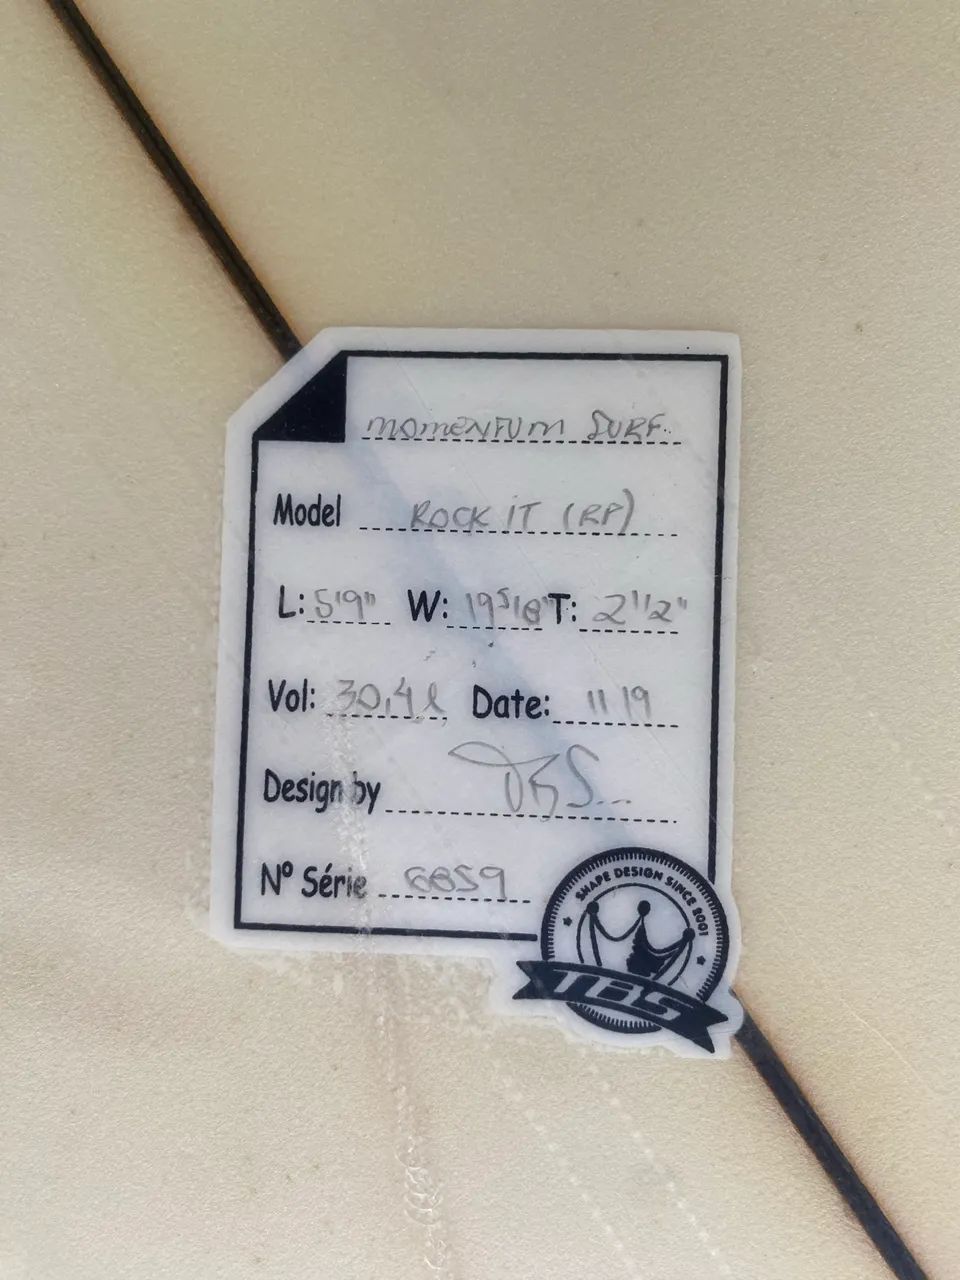 MOMENTUM SURF
Model ROCK IT (RP)
L: 5'9" W: 19 5/8" T: 2 1/2"
Vol: 30,4 l Date: 11 19
Design by TBS
Nº Série 6859
SHAPE DESIGN SINCE 2001
TBS